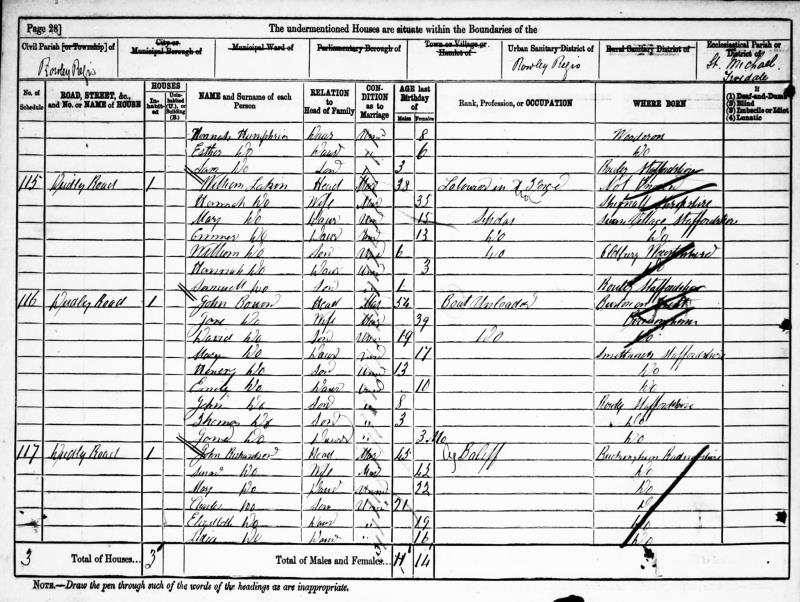 Page 28]
The undermentioned Houses are situate within the Boundaries of the
Civil Parish [or Township] of
Rowley Regis
City or Municipal Borough of
Municipal Ward of
Parliamentary Borough of
Town or Village or Hamlet of
Urban Sanitary District of
Rowley Regis
Rural Sanitary District of
Ecclesiastical Parish or District of
St. Michael Tividale
No. of Schedule
ROAD, STREET, &c., and No. or NAME of HOUSE
HOUSES
Inhabited
Uninhabited (U.), or Building (B.)
NAME and Surname of each Person
RELATION to Head of Family
CONDITION as to Marriage
AGE last Birthday of
Males
Females
Rank, Profession, or OCCUPATION
WHERE BORN
If
(1) Deaf-and-Dumb
(2) Blind
(3) Imbecile or Idiot
(4) Lunatic
Hannah Humphries Daur 8
Esther Do Daur 6 Do
Do Son 3 Rowley Staffordshire
115 Dudley Road 1 William Head Mar 38 Labourer in Not Known
Hannah Do Wife Mar 35
Mary Do Daur 15 Scholar Village Staffordshire
Do Daur 13 Do Do
William Do Son 6 Do
Hannah Do Daur 3 Do
Samuell Do Son 1 Rowley Staffordshire
116 Dudley Road 1 John Head Mar 54 Boat Unloader Burton on
Jane Do Wife Mar 39 Birmingham
David Do Son 19 Do Do
Mary Do Daur 17 Smethwick Staffordshire
Henery Do Son 13 Do
Emily Do Daur 10 Do
John Do Son 8 Rowley Staffordshire
Thomas Do Son 3 Do
Do Daur 3 Mo Do
117 Dudley Road 1 John Richardson Head Mar 45 Baliff
Do Wife Mar Do
Mary Do Daur 22 Do
Charles Do Son 21 Do
Elizabeth Do Daur 19 Do
Do Daur 16 Do
3 Total of Houses... 3 Total of Males and Females... 11 14
NOTE.—Draw the pen through such of the words of the headings as are inappropriate.